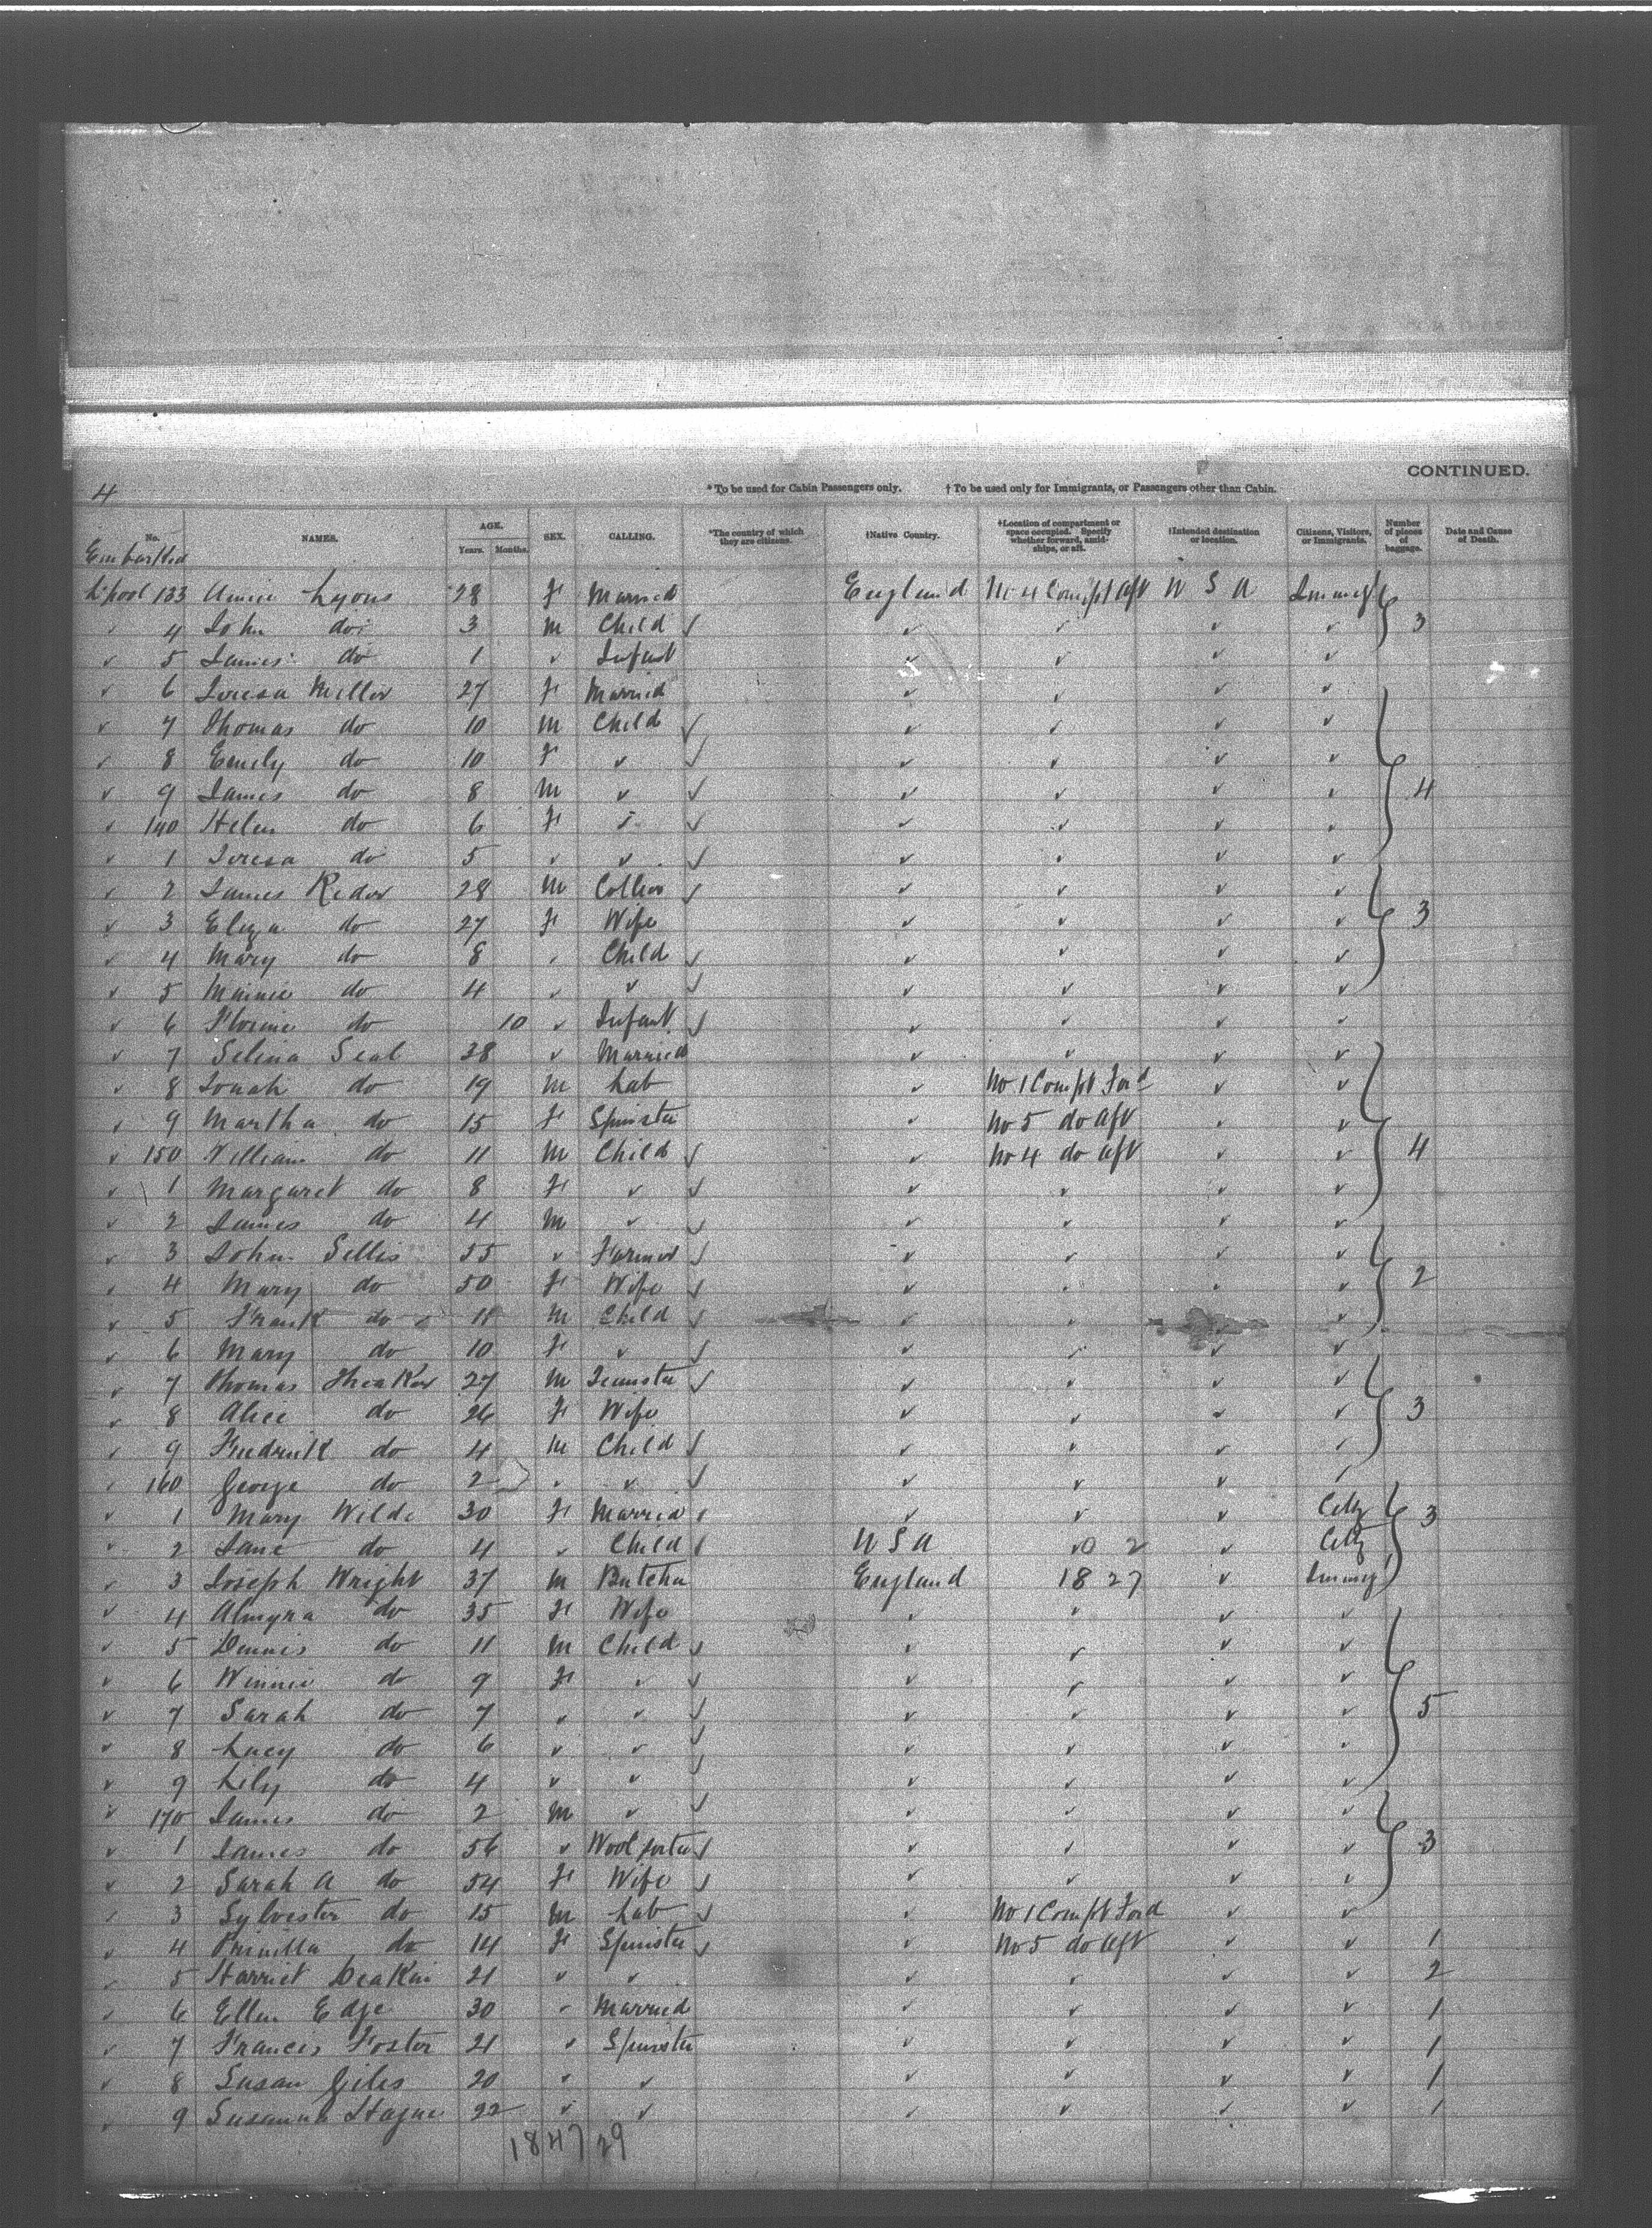 CONTINUED.
4 *To be used for Cabin Passengers only. †To be used only for Immigrants, or Passengers other than Cabin.
No. NAMES. AGE. Years. Months. SEX. CALLING. *The country of which they are citizens. †Native Country. †Location of compartment or space occupied. Specify whether forward, amidships, or aft. †Intended destination or location. Citizens, Visitors, or Immigrants. Number of pieces of baggage. Date and Cause of Death.
Embarked
L'pool 133 Annie Lyons 28 F Married England No 4 Compt Aft U S A Immigt
4 John do 3 M Child ✓ 3
5 James do 1 ✓ Infant
6 Teresa Miller 27 F Married
7 Thomas do 10 M Child ✓
8 Emily do 10 F ✓ ✓
9 James do 8 M ✓ ✓ 4
140 Helen do 6 F ✓ ✓
1 Teresa do 5 ✓ ✓ ✓
2 James Reder 28 M Collier ✓
3 Eliza do 27 F Wife 3
4 Mary do 8 ✓ Child ✓
5 Minnie do 4 ✓ ✓ ✓
6 do 10 ✓ Infant ✓
7 Selina Seal 38 ✓ Married
8 Jonah do 19 M Lab No 1 Compt Ford
9 Martha do 15 F Spinster No 5 do Aft
150 William do 11 M Child ✓ No 4 do Aft 4
1 Margaret do 8 F ✓ ✓
2 James do 4 M ✓ ✓
3 John Sellis 55 ✓ Farmer ✓
4 Mary do 50 F Wife ✓ 2
5 Frank do 11 M Child ✓
6 Mary do 10 F ✓ ✓
7 Thomas Theaker 27 M Teamster ✓
8 Alice do 26 F Wife 3
9 Fredrick do 4 M Child ✓
160 George do 2 ✓ ✓ ✓
1 Mary Wilde 30 F Married City 3
2 Jane do 4 ✓ Child U S A 0 2 City
3 Joseph Wright 37 M Butcher England 18 27 Immig
4 Almyra do 35 F Wife
5 Dennis do 11 M Child ✓
6 Winnie do 9 F ✓ ✓
7 Sarah do 7 ✓ ✓ ✓ 5
8 Lucy do 6 ✓ ✓ ✓
9 Lily do 4 ✓ ✓ ✓
170 James do 2 M ✓ ✓
1 James do 56 ✓ Wool sorter ✓ 3
2 Sarah A do 54 F Wife ✓
3 Sylvester do 15 M Lab ✓ No 1 Compt Ford
4 do 14 F Spinster ✓ No 5 do Aft 1
5 Harriet Deakin 21 ✓ ✓ 2
6 Ellen Edge 30 ✓ Married 1
7 Francis Foster 21 ✓ Spinster 1
8 Susan Giles 20 ✓ ✓ 1
9 Susannah Hague 22 ✓ ✓ 1
1847 29